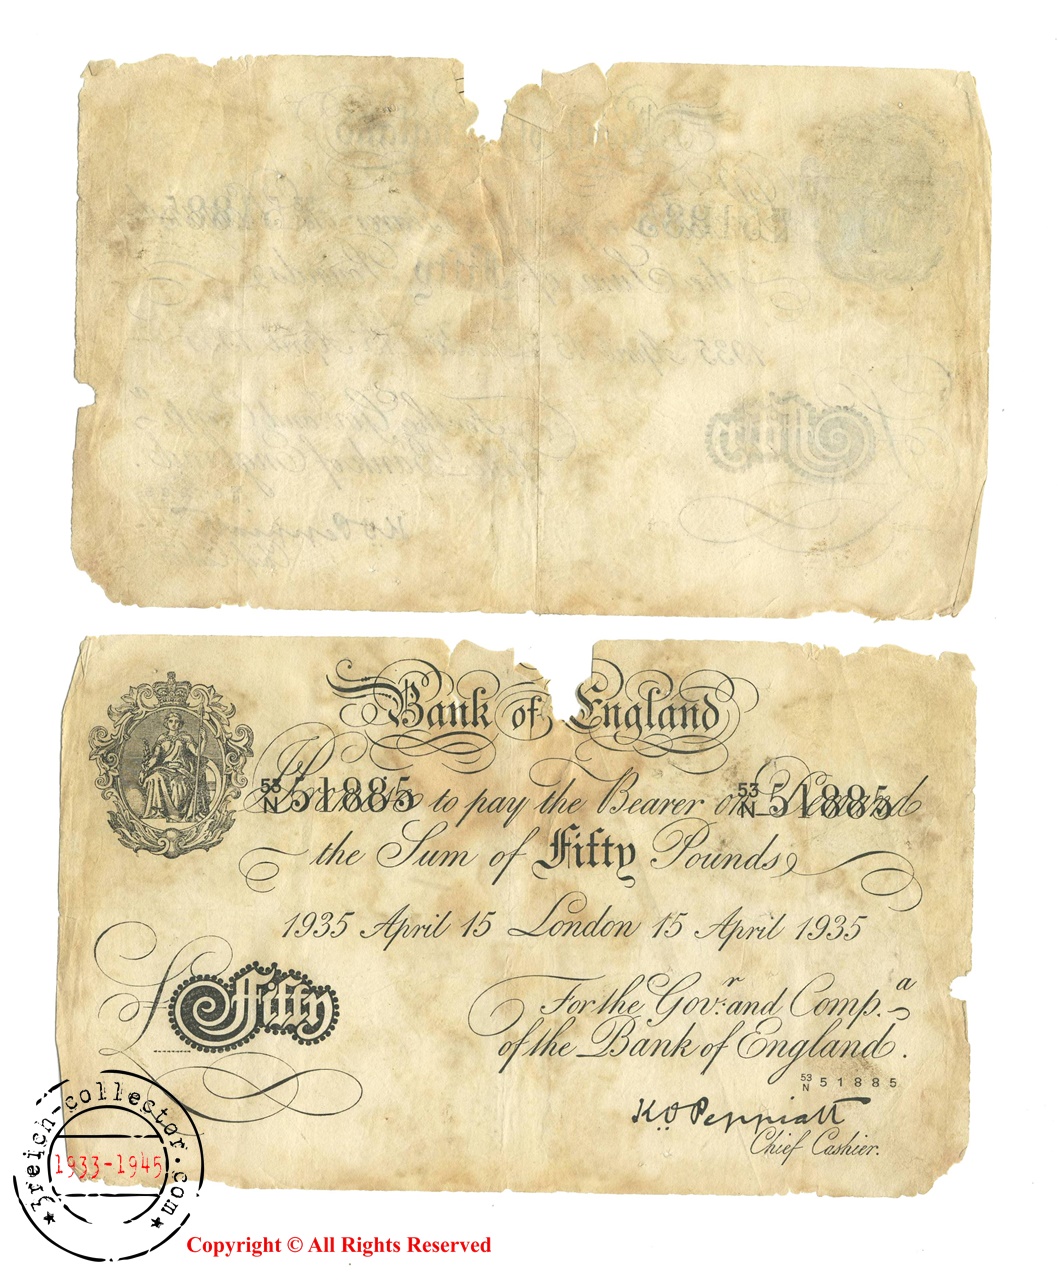 Bank of England
53 N 51885 Promise to pay the Bearer on Demand 53 N 51885
the Sum of Fifty Pounds
1935 April 15 London 15 April 1935
£ Fifty
For the Gov.r and Comp.a
of the Bank of England.
53 N 51885
K.O. Peppiatt
Chief Cashier.
3reich-collector.com
1933-1945
Copyright © All Rights Reserved